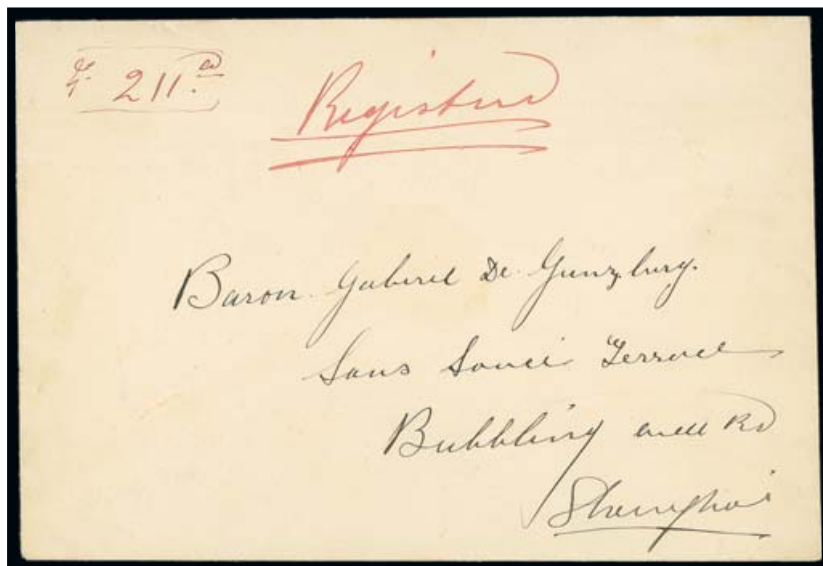 211
Registered
Baron Gabriel De Gunzburg.
Sans Souci Terrace
Bubbling well Rd
Shanghai